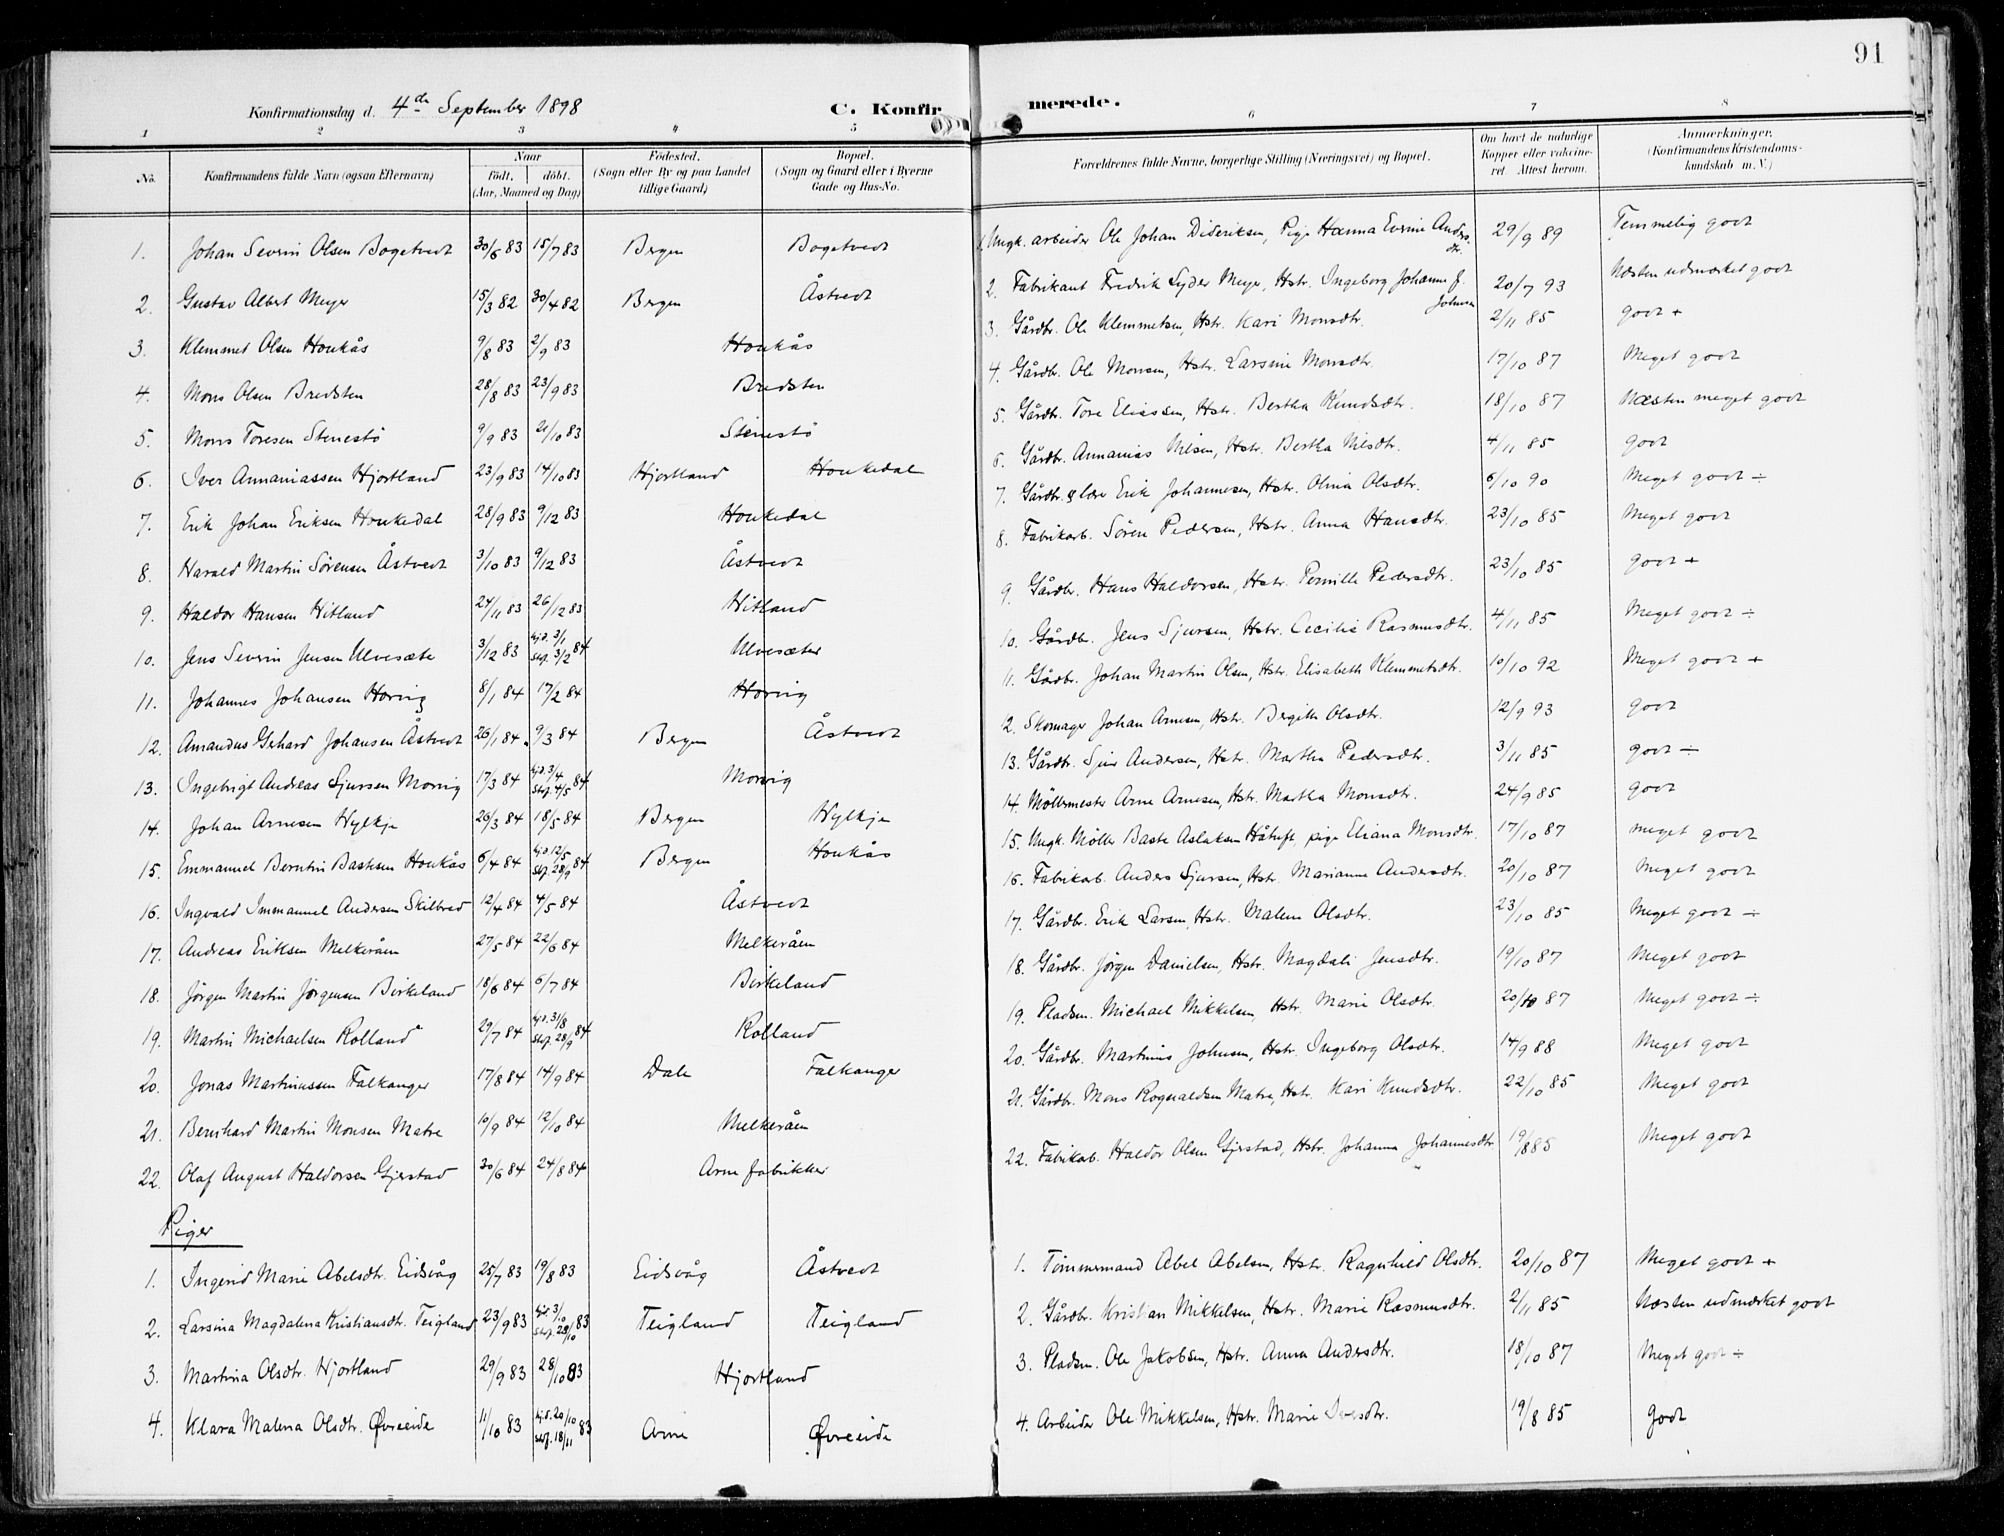 91
Konfirmationsdag d. 4de September 1898 C. Konfirmerede.
1 2 3 4 5 6 7 8
No. Konfirmandens fulde Navn (ogsaa Efternavn) Naar födt. döbt. (Aar, Maaned og Dag) Födested. (Sogn eller By og paa Landet tillige Gaard) Bopæl. (Sogn og Gaard eller i Byerne Gade og Hus-No. Forældrenes fulde Navne, borgerlige Stilling (Næringsvei) og Bopæl. Om havt de naturlige Kopper eller vakcineret. Attest herom. Anmærkninger. (Konfirmandens Kristendomskundskab m. V.)
1. Johan Severin Olsen Bogetvedt 30/6 83 15/7 83 Bergen Bogetvedt 1 Ungk. arbeider Ole Johan Dideriksen, Pige Hanna Evrine Andersdtr. 29/9 89 Temmelig godt
2. Gustav Albert Meyer 15/3 82 30/4 82 Bergen Åstvedt 2. Fabrikant Fredrik Lyder Meyer, Hstr. Ingeborg Johanne f. Johnsen 20/7 93 Næsten udmærket godt
3. Klemmet Olsen Houkås 9/8 83 2/9 83 Houkås 3. Gårdbr. Ole Klemmetsen, Hstr. Kari Monsdtr. 2/11 85 godt +
4. Mons Olsen Bredsten 28/8 83 23/9 83 Bredsten 4. Gårdbr. Ole Monsen, Hstr. Larsine Monsdtr. 17/10 87 Meget godt
5. Mons Toresen Stenestö 9/9 83 21/10 83 Stenestö 5. Gårdbr. Tore Eliassen, Hstr. Bertha Knudsdtr. 18/10 87 Næsten meget godt
6. Iver Annaniassen Hjortland 23/9 83 14/10 83 Hjortland Houkedal 6. Gårdbr. Annanias Nilsen, Hstr. Bertha Nilsdtr. 4/11 85 godt
7. Erik Johan Eriksen Houkedal 28/9 83 9/12 83 Houkedal 7. Gårdbr. & lærer Erik Johannesen, Hstr. Olina Olsdtr. 6/10 90 Meget godt ÷
8. Harald Martin Sörensen Åstvedt 3/10 83 9/12 83 Åstvedt 8. Fabrikarb. Sören Pedersen, Hstr. Anna Hansdtr. 23/10 85 Meget godt
9. Haldor Hansen Hitland 24/11 83 26/12 83 Hitland 9. Gårdbr. Hans Haldorsen, Hstr. Pernille Pedersdtr. 23/10 85 godt +
10. Jens Severin Jensen Ulvesæter 3/12 83 hjd. 3/1 Stf. 3/2 84 Ulvesæter 10. Gårdbr. Jens Sjursen, Hstr. Cecilie Rasmusdtr. 4/11 85 Meget godt ÷
11. Johannes Johansen Horvig 8/1 84 17/2 84 Horvig 11. Gårdbr. Johan Martin Olsen, Hstr. Elisabeth Klemmetsdtr. 10/10 92 Meget godt +
12. Amandus Gerhard Johansen Åstvedt 26/1 84 9/3 84 Bergen Åstvedt 12. Skomager Johan Arnesen, Hstr. Bergithe Olsdtr. 12/9 93 godt
13. Ingebrigt Andreas Sjursen Morvig 17/3 84 hjd. 3/4 Stf. 4/5 84 Morvig 13. Gårdbr. Sjur Andersen, Hstr. Martha Pedersdtr. 3/11 85 godt ÷
14. Johan Arnesen Hylkje 26/3 84 18/5 84 Bergen Hylkje 14. Möllermester Arne Arnesen, Hstr. Martha Monsdtr. 24/9 85 godt
15. Emmanuel Berntin Bastesen Houkås 6/4 84 hjd. 12/5 Stf. 28/9 84 Bergen Houkås 15. Ungk. Möller Baste Aslaksen Håtuft, pige Eliana Monsdtr. 17/10 87 meget godt
16. Ingvald Immanuel Andersen Skilbred 12/4 84 4/5 84 Åstvedt 16. Fabrikarb. Anders Sjursen, Hstr. Marianne Andersdtr. 20/10 87 Meget godt
17. Andreas Eriksen Melkeråen 27/5 84 22/6 84 Melkeråen 17. Gårdbr. Erik Larsen, Hstr. Malene Olsdtr. 23/10 85 Meget godt ÷
18. Jörgen Martin Jörgensen Birkeland 18/6 84 6/7 84 Birkeland 18. Gårdbr. Jörgen Danielsen, Hstr. Magdali Jensdtr. 19/10 87 Meget godt
19. Martin Michaelsen Rolland 29/7 84 hjd. 31/8 Stf. 28/9 84 Rolland 19. Pladsm. Michael Mikkelsen, Hstr. Marie Olsdtr. 20/10 87 Meget godt ÷
20. Jonas Martinussen Falkanger 17/8 84 14/9 84 Dale Falkanger 20. Gårdbr. Martinus Johnsen, Hstr. Ingeborg Olsdtr. 14/9 88 Meget godt
21. Bernhard Martin Monsen Matre 10/9 84 12/10 84 Melkeråen 21. Gårdbr. Mons Rognaldsen Matre, Hstr. Kari Knudsdtr. 22/10 85 Meget godt
22. Olaf August Haldorsen Gjerstad 30/6 84 24/8 84 Arne fabrikker 22. Fabrikarb. Haldor Olsen Gjerstad, Hstr. Johanna Johannesdtr. 19/8 85 Meget godt
Piger
1. Ingerid Marie Abelsdtr. Eidsvåg 25/7 83 19/8 83 Eidsvåg Åstvedt 1. Tömmermand Abel Abelsen, Hstr. Ragnhild Olsdtr. 20/10 87 Meget godt +
2. Larsina Magdalena Kristiansdtr. Teigland 23/9 83 hjd. 3/10 Stf. 28/10 83 Teigland Teigland 2. Gårdbr. Kristian Mikkelsen, Hstr. Marie Rasmusdtr. 2/11 85 Næsten udmærket godt
3. Martina Olsdtr. Hjortland 29/9 83 28/10 83 Hjortland 3. Pladsm. Ole Jakobsen, Hstr. Anna Andersdtr. 18/10 87 Meget godt ÷
4. Klara Malena Olsdtr. Øvreeide 11/10 83 hjd. 20/10 Stf. 18/11 83 Arne Øvreeide 4. Arbeider Ole Mikkelsen, Hstr. Marie Iversdtr. 19/8 85 godt